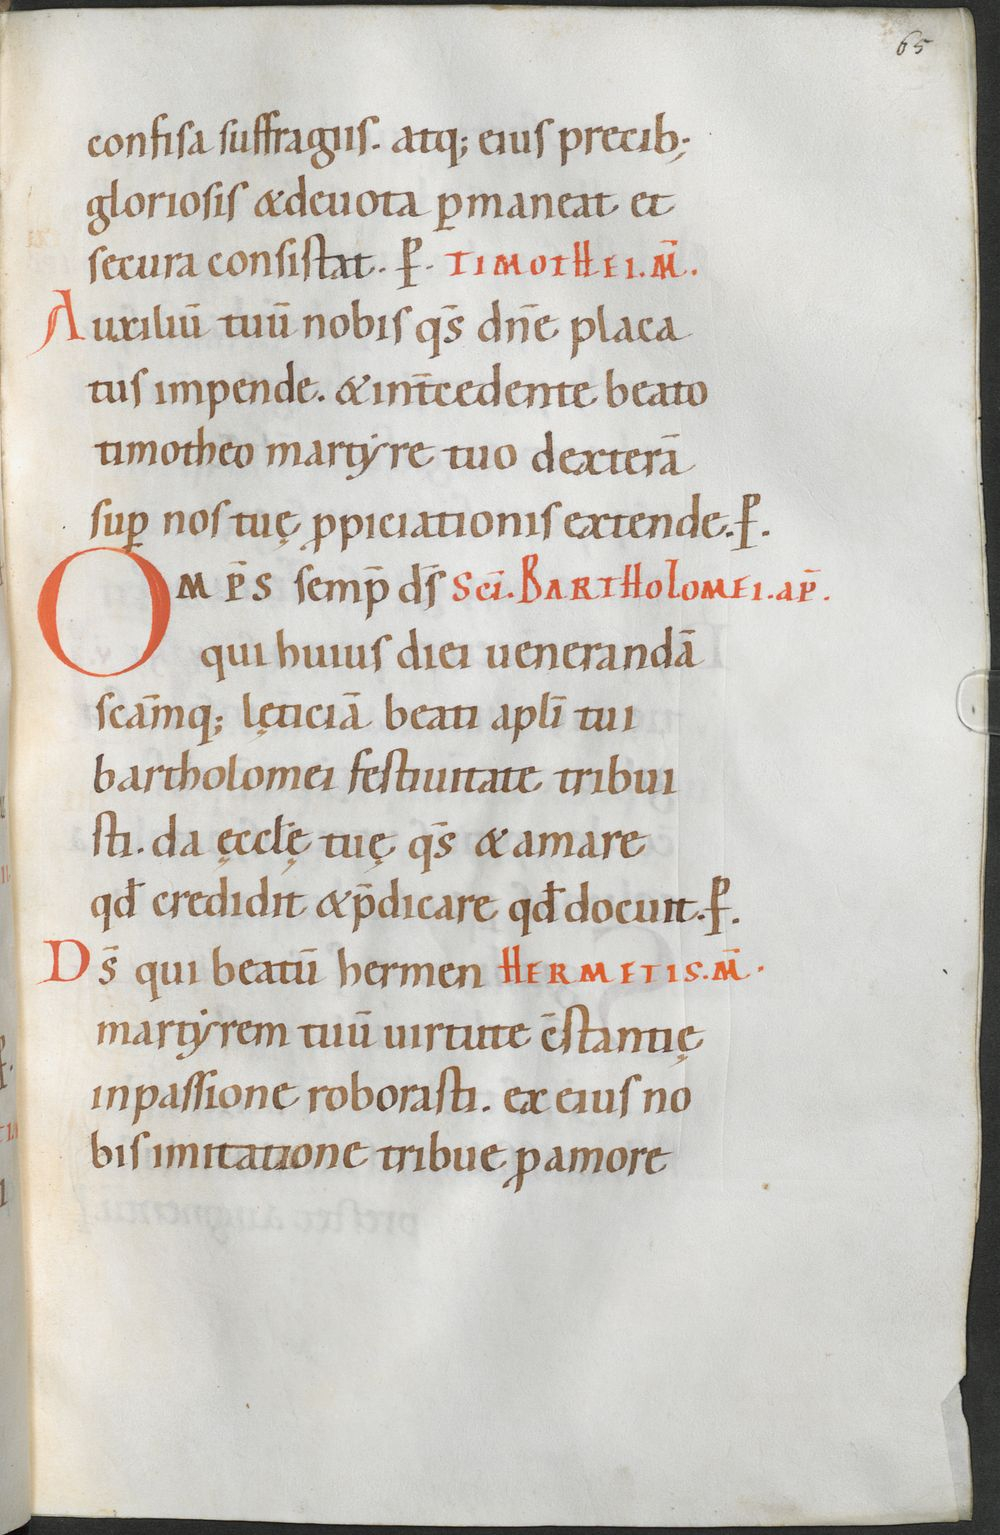 65
confisa suffragiis. atq; eius precib;
gloriosis &deuota ꝑmaneat et
secura consistat. ꝑ. TIMOTHEI. M̄.
Auxiliū tuū nobis qs̄ dn̄e placa
tus impende. &int̄cedente beato
timotheo martẏre tuo dexterā
suꝑ nos tuę ꝓpiciationis extende. ꝑ.
OMP̄S semp̄ ds̄ Scī. BARTHOLOMEI. ap̄.
qui huius diei uenerandā
scām̄q; lęticiā beati apl̄i tui
bartholomei festiuitate tribui
sti. da ęccl̄ę tuę qs̄ & amare
qd̄ credidit &p̄dicare qd̄ docuit. ꝑ.
Ds̄ qui beatū hermen HERMETIS. M̄.
martẏrem tuū uirtute c̄stantię
inpassione roborasti. ex eius no
bis imitatione tribue ꝓ amore